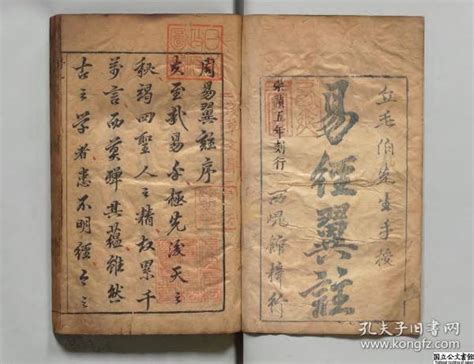 丘毛伯先生手授
易經翼註
崇禎五年刻行
周易翼註序
大至哉易乎極先後天之
秘竭四聖人之精权累千
萬言而莫殫其蕴雖然
古之学者患不明經今之
孔夫子旧书网
www.kongfz.com
国立公文書館